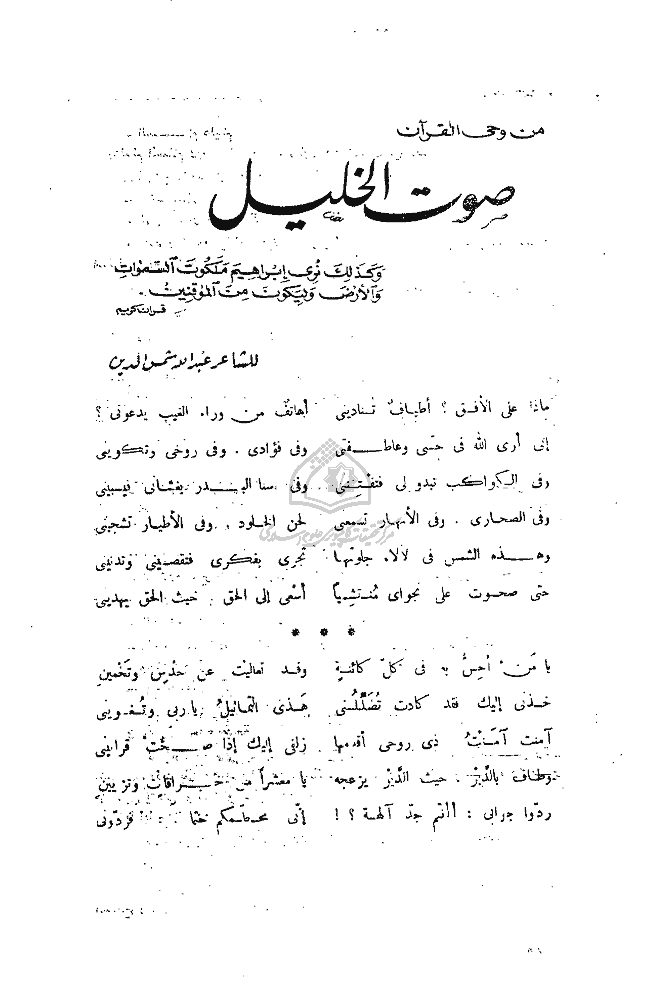 من وحى القرآن
صوت الخليل
وَكَذلِكَ نُرِى إِبْرَاهِيمَ مَلَكُوتَ السَّمٰوَاتِ
وَالأَرْضِ وَلِيَكُونَ مِنَ المُوقِنِينَ .
قرآن كريم
للشاعر عبد الله شمس الدين
ماذا على الأفق ؟ أطيافٌ تنادينى أهاتفٌ من وراء الغيب يدعونى ؟
إنى أرى الله فى حسّى وعاطفتى وفى فؤادى . وفى روحى وتكوينى
وفى الكواكب تبدو لى فتفتننى وفى سنا البدر يغشانى فيسبينى
وفى الصحارى . وفى الأنهار تسمعنى لحن الخلود . وفى الأطيار تشجينى
وهذه الشمس فى لألاء جلوتها تجرى بفكرى فتقصينى وتدنينى
حتى صحوت على نجواى مُنتشياً أسعى إلى الحق . حيث الحق يهدينى
* * *
يا مَن أحِسُّ به فى كلّ كائنةٍ وقد تعاليت عن حدْسٍ وتخمينِ
خذنى إليك فقد كادت تُضَلّلُنى هذى التماثيلُ يا ربى وتُغوينى
آمنت آمنتُ ذى روحى أقدمها زلفى إليك إذا صحّتْ قرابينى
وطاف بالدَّيْرِ . حيث الدَّيْرُ يزعجه يا معشراً من خرافاتٍ وتزيينِ
ردّوا جوابى : أأنتم جدّ آلهة ؟ ! إنّى محطّمكم حتما . فردّونى